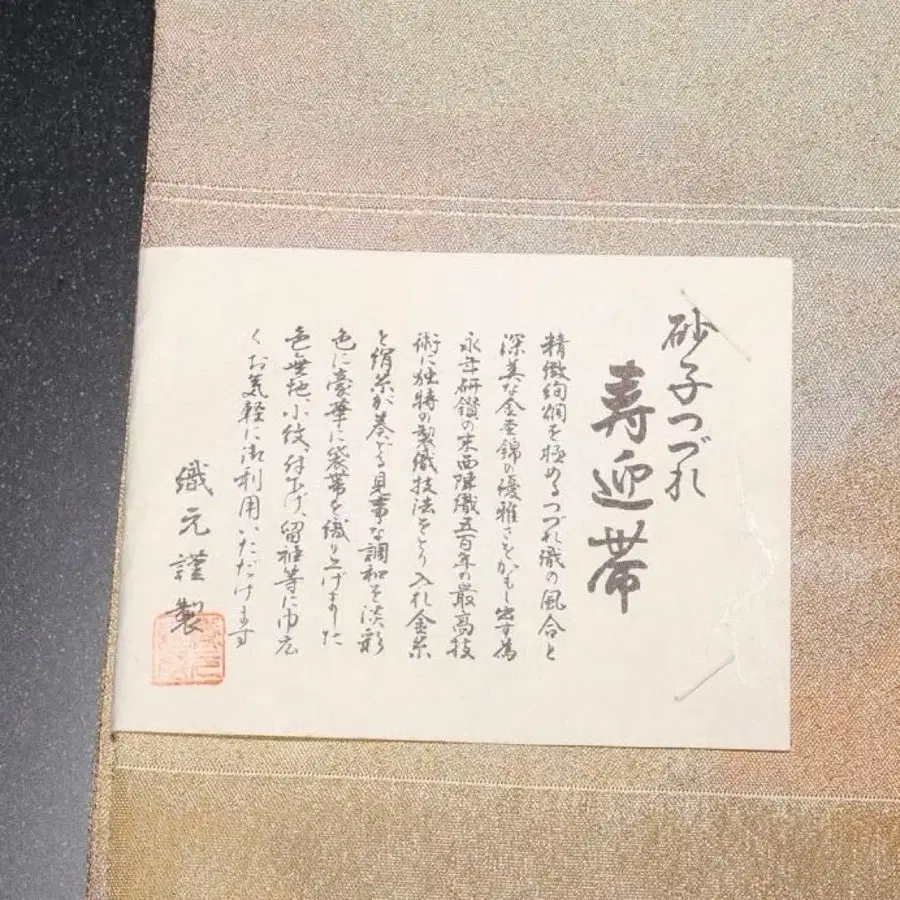 砂子つづれ
寿迎帯
精微絢爛を極めるつづれ織の風合と
深美な金童錦の優雅さをかもし出す為
永年研鑽の末西陣織五百年の最高技
術に独特の製織技法をとり入れ金糸
と絹糸が奏でる見事な調和を淡彩
色に豪華に袋帯を織り上げました
色無地、小紋、付下げ、留袖等に巾広
くお気軽に御利用いただけます
織元謹製